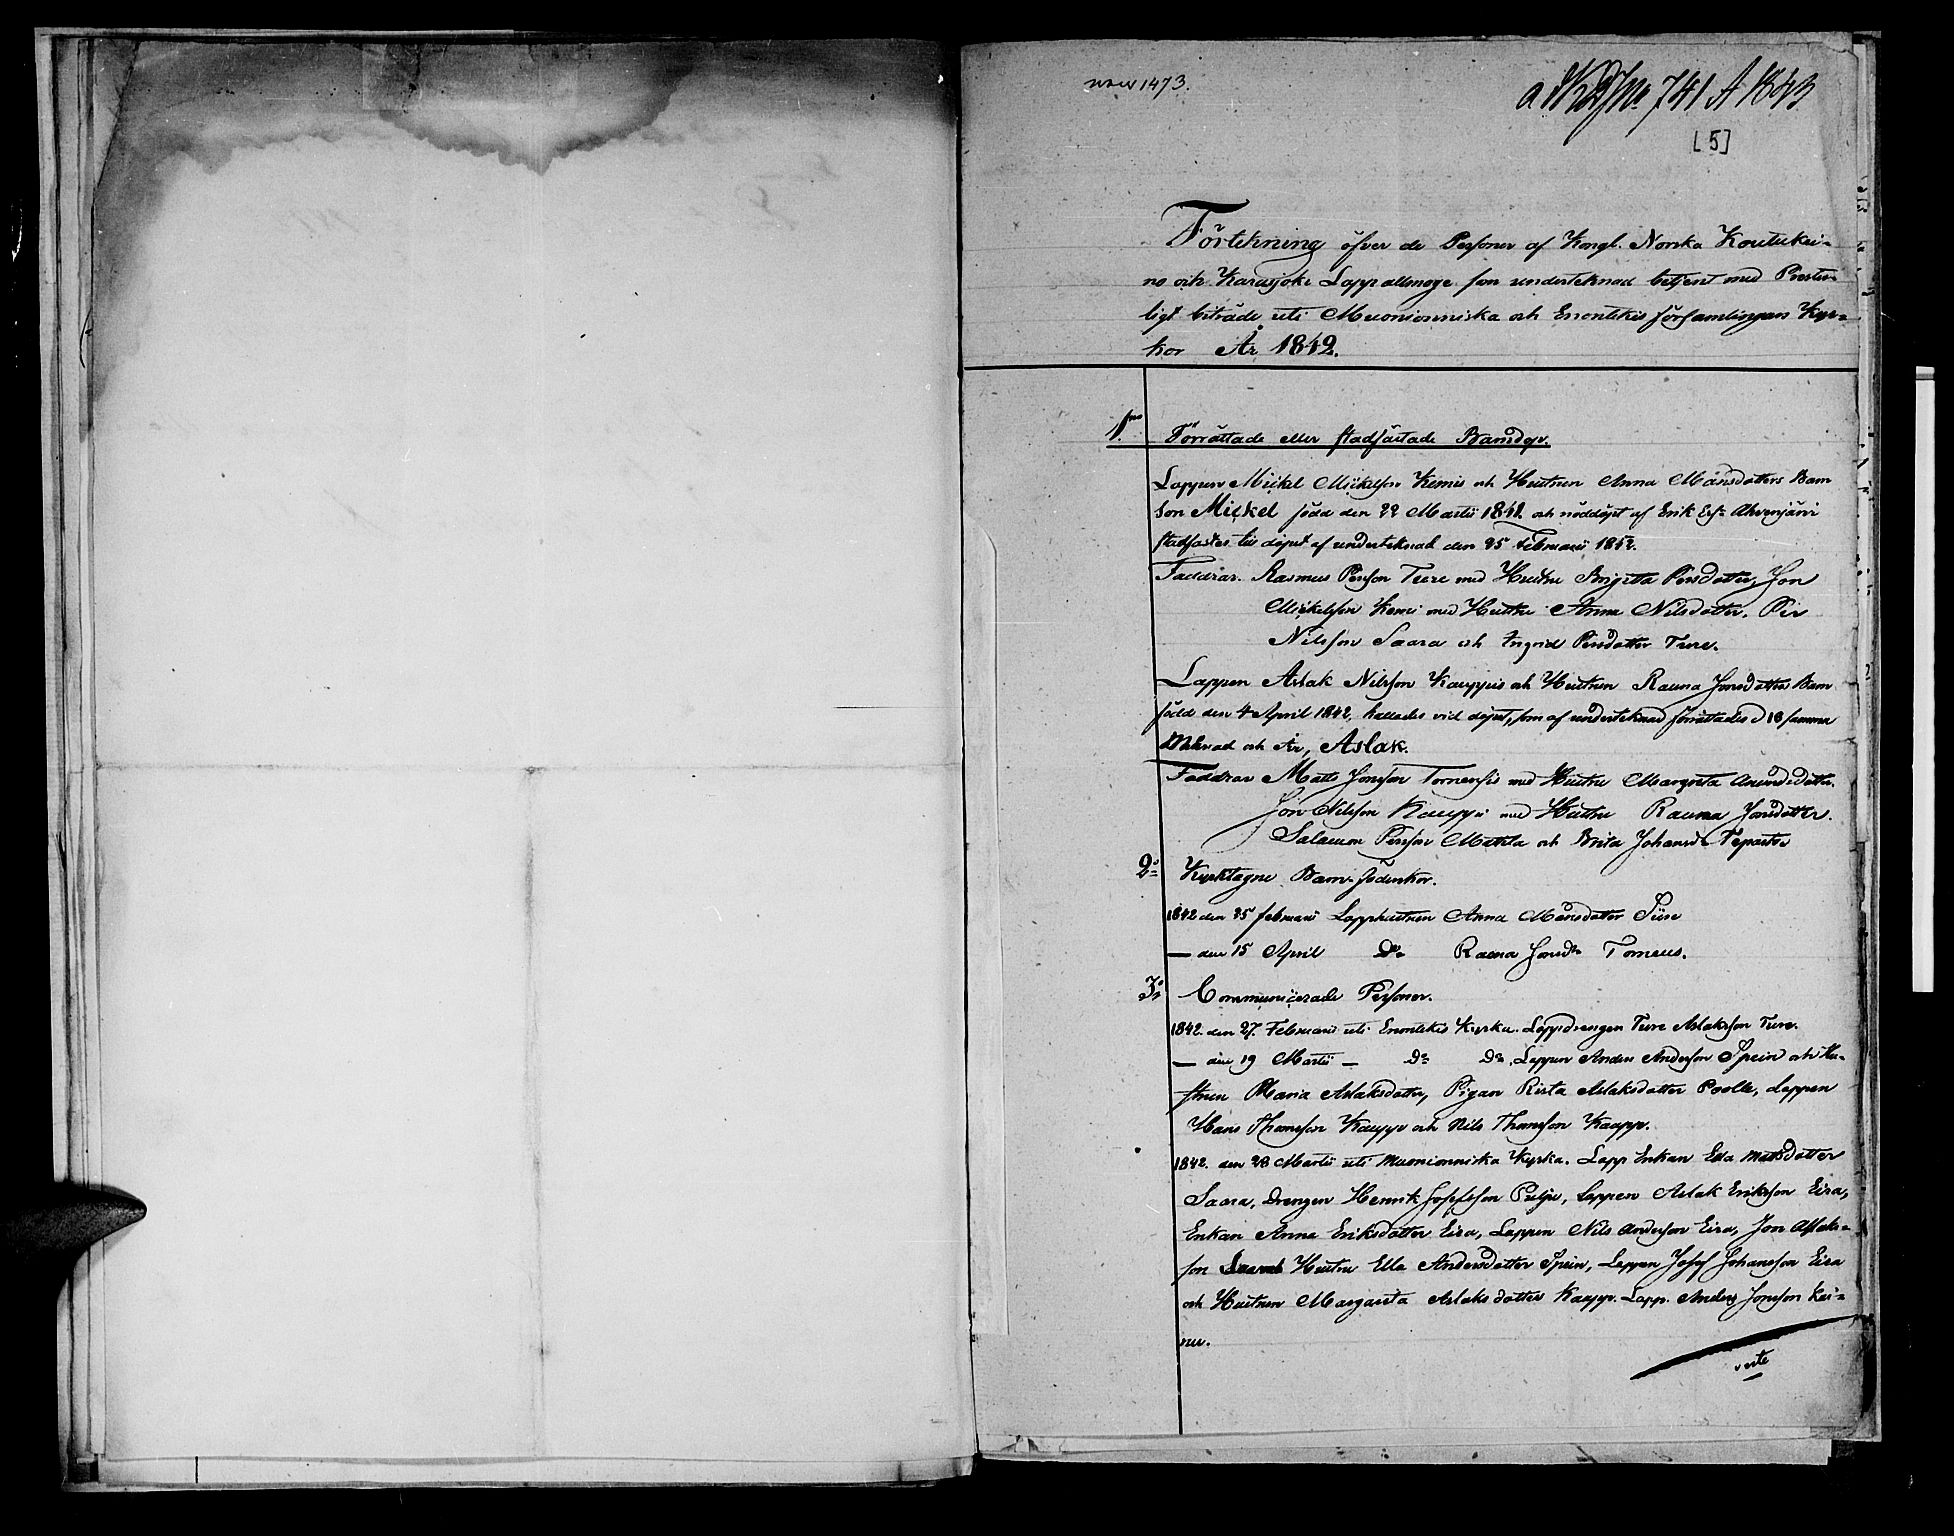 1473.
No 741 A 1843
[5]
Förtekning öfver de Personer af Kongl. Norska Koutukei=
no och Karasjoki Lappallmoge som undertecknad betjent med Prester=
ligt biträde uti Muonionniska och Enontekis församlingars Kyr=
kor År 1842.
1mo Förrättade eller stadfästade Barndop.
Lappen Mickel Mickelson Kemis och Hustrun Anna Månsdotters Barn
Son Mickel född den 22 Martii 1841. och nöddöpt af Erik Ersn Ahvenjärvi
stadfästes till döpet af undertecknad den 25 Februarii 1842.
Faddrar. Rasmus Persson Ture med Hustru Brigitta Persdotter, Jon
Mickelson Kemi med Hustru Anna Nilsdotter. Per
Nilsson Saara och Ingrid Persdotter Ture.
Lappen Aslak Nilsson Kauppis och Hustrun Rauna Jonsdotters Barn
född den 4 April 1842, kallades vid döpet, som af undertecknad förrättades d 18 samma
Månad och År, Aslak.
Faddrar Matts Jonsson Tornensis med Hustru Margreta Amundsdotter.
Jon Nilsson Kauppi med Hustru Rauna Jonsdotter.
Salamon Persson Mattila och Brita Johansd
2o Kyrktagne Barn-föderskor.
1842 den 25 februarii Lapphustrun Anna Månsdotter
— den 15 April Do Rauna Jonsdr Torneus.
3o Communicerade Personer.
1842. den 27. Februarii uti Enontekis Kyrka. Lappdrengen Ture Aslaksson Ture.
— den 19 Martii — Do Do. Lappen Anders Andersson Spein och Hu=
strun Maria Aslaksdotter, Pigan Rista Aslaksdotter Poolle, Lappen
Hans Thomsson Kaupp och Nils Thomsson Kaupp.
1842. den 28 Martii uti Muonionniska Kyrka. Lapp Enkan Ella Mattsdotter
Saara, Drengen Henrik Josefsson Pulju, Lappen Aslak Eriksson Eira,
Enkan Anna Eriksdotter Eira, Lappen Nils Andersson Eira, Jon Aslaks=
son Hustru Ella Andersdotter Spein, Lappen Josef Johansson Eira
och Hustrun Margareta Aslaksdotter Kaupp. Lapp. Anders Jonsson Kei=
nu.
verte